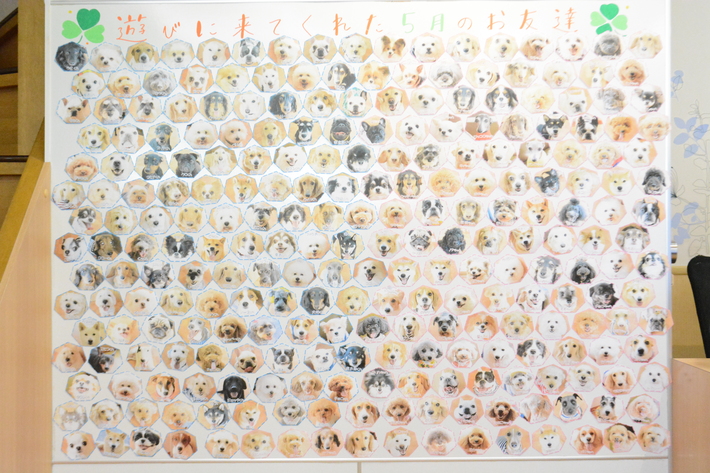 遊びに来てくれた5月のお友達